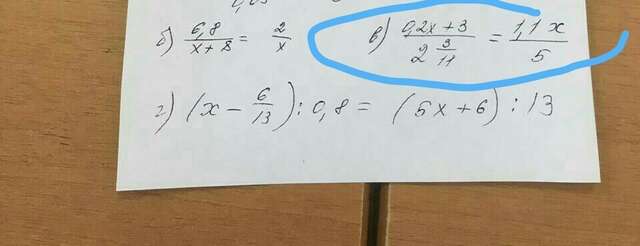 б) 6,8/(x+8) = 2/x в) (0,2x+3)/(2 3/11) = 1,1x/5
г) (x - 6/13) : 0,8 = (5x+6) : 13